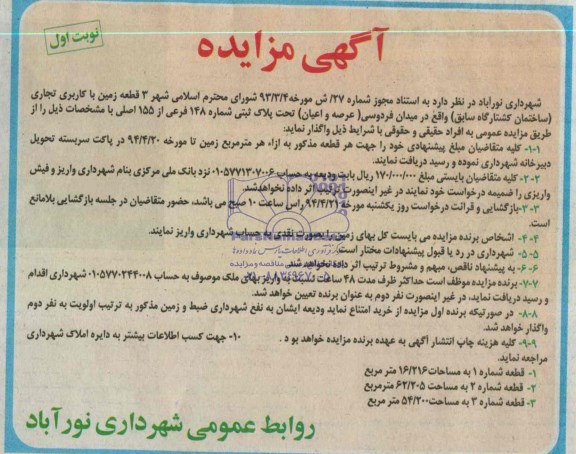 نوبت اول
آگهی مزایده
شهرداری نورآباد در نظر دارد به استناد مجوز شماره ۲۷/ ش مورخه ۹۳/۳/۴ شورای محترم اسلامی شهر ۳ قطعه زمین با کاربری تجاری
(ساختمان کشتارگاه سابق) واقع در میدان فردوسی( عرصه و اعیان) تحت پلاک ثبتی شماره ۱۴۸ فرعی از ۱۵۵ اصلی با مشخصات ذیل را از
طریق مزایده عمومی به افراد حقیقی و حقوقی با شرایط ذیل واگذار نماید:
۱-۱- کلیه متقاضیان مبلغ پیشنهادی خود را جهت هر قطعه مذکور به ازاء هر مترمربع زمین تا مورخه ۹۴/۴/۲۰ در پاکت سربسته تحویل
دبیرخانه شهرداری نموده و رسید دریافت نمایند.
۲-۲- کلیه متقاضیان بایستی مبلغ ۱۷۰/۰۰۰/۰۰۰ ریال بابت ودیعه به حساب ۰۱۰۵۷۷۱۳۰۷۰۰۶ نزد بانک ملی مرکزی بنام شهرداری واریز و فیش
واریزی را ضمیمه درخواست خود نمایند در غیر اینصورت ترتیب اثر داده نخواهد شد.
۳-۳- بازگشایی و قرائت درخواست روز یکشنبه مورخه ۹۴/۴/۲۱ راس ساعت ۱۰ صبح می باشد، حضور متقاضیان در جلسه بازگشایی بلامانع
است.
۴-۴- اشخاص برنده مزایده می بایست کل بهای زمین را بصورت نقدی به حساب شهرداری واریز نمایند.
۵-۵- شهرداری در رد یا قبول پیشنهادات مختار است.
۶-۶- به پیشنهاد ناقص، مبهم و مشروط ترتیب اثر داده نخواهد شد.
۷-۷- برنده مزایده موظف است حداکثر ظرف مدت ۴۸ ساعت نسبت به واریز بهای ملک موصوف به حساب ۰۱۰۵۷۷۰۲۴۴۰۰۸ شهرداری اقدام
و رسید دریافت نماید، در غیر اینصورت نفر دوم به عنوان برنده تعیین خواهد شد.
۸-۸- در صورتیکه برنده اول مزایده از خرید امتناع نماید ودیعه ایشان به نفع شهرداری ضبط و زمین مذکور به ترتیب اولویت به نفر دوم
واگذار خواهد شد.
۹-۹- کلیه هزینه چاپ انتشار آگهی به عهده برنده مزایده خواهد بود . ۱۰- جهت کسب اطلاعات بیشتر به دایره املاک شهرداری
مراجعه نماید.
۱- قطعه شماره ۱ به مساحات ۱۶/۲۱۶ متر مربع
۲- قطعه شماره ۲ به مساحت ۶۲/۲۰۵ مترمربع
۳- قطعه شماره ۳ به مساحت ۵۴/۲۰۰ متر مربع
روابط عمومی شهرداری نورآباد